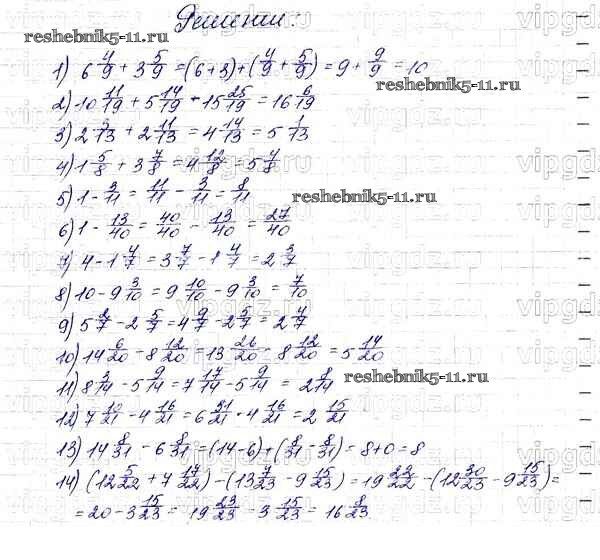 Решение:
reshebnik5-11.ru
1) 6 4/9 + 3 5/9 = (6+3)+(4/9 + 5/9) = 9 + 9/9 = 10
reshebnik5-11.ru
2) 10 11/19 + 5 14/19 = 15 25/19 = 16 6/19
3) 2 3/13 + 2 11/13 = 4 14/13 = 5 1/13
4) 1 5/8 + 3 7/8 = 4 12/8 = 5 4/8
5) 1 - 3/11 = 11/11 - 3/11 = 8/11
reshebnik5-11.ru
6) 1 - 13/40 = 40/40 - 13/40 = 27/40
7) 4 - 1 4/7 = 3 7/7 - 1 4/7 = 2 3/7
8) 10 - 9 3/10 = 9 10/10 - 9 3/10 = 7/10
9) 5 2/7 - 2 5/7 = 4 9/7 - 2 5/7 = 2 4/7
10) 14 6/20 - 8 12/20 = 13 26/20 - 8 12/20 = 5 14/20
11) 8 3/14 - 5 9/14 = 7 17/14 - 5 9/14 = 2 8/14
reshebnik5-11.ru
12) 7 10/21 - 4 16/21 = 6 31/21 - 4 16/21 = 2 15/21
13) 14 8/31 - 6 8/31 = (14-6)+(8/31 - 8/31) = 8+0 = 8
14) (12 5/22 + 7 17/22) - (13 7/23 - 9 15/23) = 19 22/22 - (12 30/23 - 9 15/23) =
= 20 - 3 15/23 = 19 23/23 - 3 15/23 = 16 8/23
vipgdz.ru